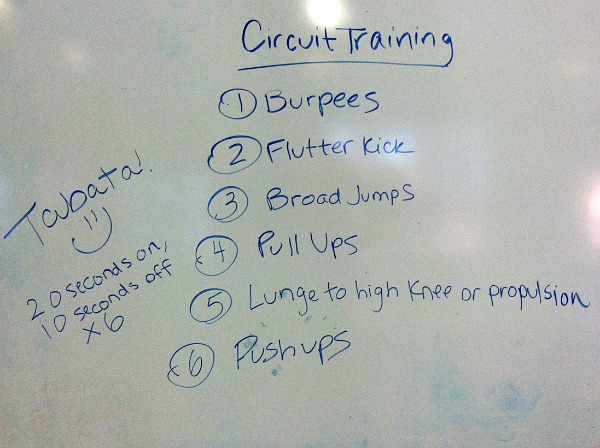 Circuit Training
1 Burpees
2 Flutter Kick
3 Broad Jumps
4 Pull Ups
5 Lunge to high Knee or propulsion
6 Push ups
Tabata!
20 seconds on,
10 seconds off
x6